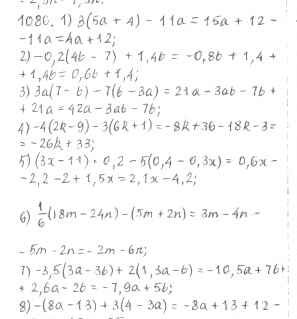 1086. 1) 3(5a + 4) - 11a = 15a + 12 -
- 11a = 4a + 12;
2) -0,2(4b - 7) + 1,4b = -0,8b + 1,4 +
+ 1,4b = 0,6b + 1,4;
3) 3a(7 - b) - 7(b - 3a) = 21a - 3ab - 7b +
+ 21a = 42a - 3ab - 7b;
4) -4(2k - 9) - 3(6k + 1) = -8k + 36 - 18k - 3 =
= -26k + 33;
5) (3x - 11) · 0,2 - 5(0,4 - 0,3x) = 0,6x -
- 2,2 - 2 + 1,5x = 2,1x - 4,2;
6) 1/6 (18m - 24n) - (5m + 2n) = 3m - 4n -
- 5m - 2n = -2m - 6n;
7) -3,5(3a - 3b) + 2(1,3a - b) = -10,5a + 7b +
+ 2,6a - 2b = -7,9a + 5b;
8) -(8a - 13) + 3(4 - 3a) = -8a + 13 + 12 -